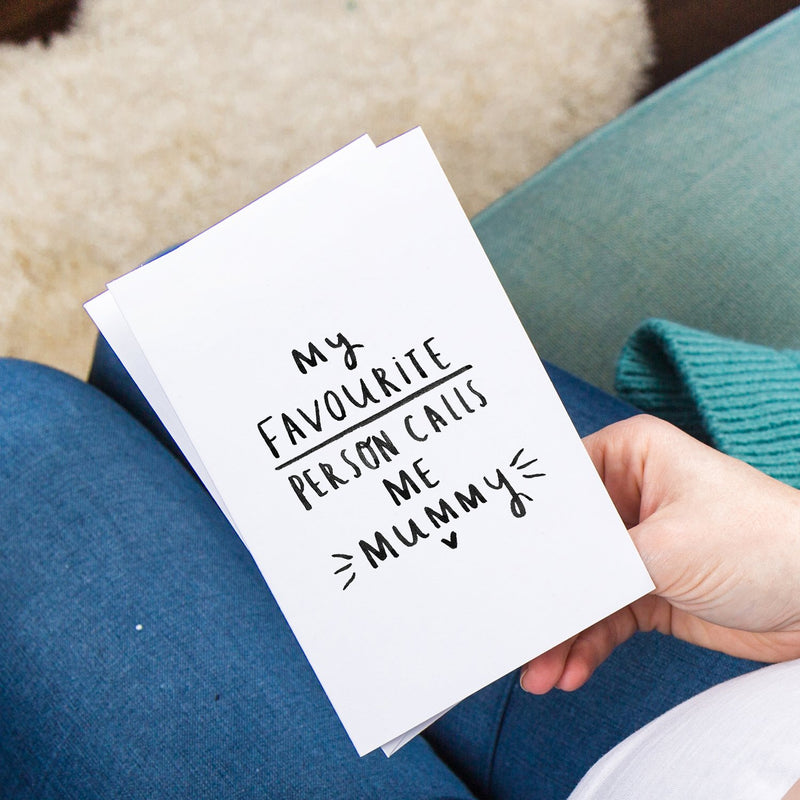 My
FAVOURiTE
PERSON CALLS
ME
MUMMY